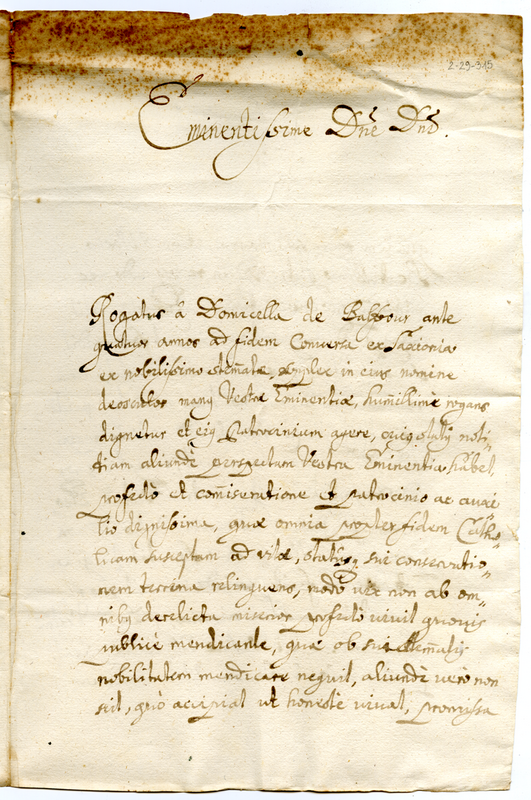 2-29-315
Eminentissime Dne Dne.
Rogatus à Domicella de Babbour ante
quatuor annos ad fidem Conversa ex Saxonia
ex nobilissimo stemate, supplex in eius nomine
deosculor manus Vestræ Eminentiæ, humillimè rogans
dignetur et eius Patrocinium agere, cuius status noti„
tiam aliundè perspectam Vestra Eminentia habet,
profectò et comiseratione et patrocinio ac auxi„
lio dignissima, quæ omnia propter fidem Catho„
licam susceptam ad vitæ, status sui conservatio„
nem terrena relinquens, modò vix non ab om„
nibus derelicta miserior profectò vivit quovis
publicè mendicante, quæ ob sui stematis
nobilitatem mendicare nequit, aliundè verò non
sit, quò accipiat ut honestè vivat, promissa